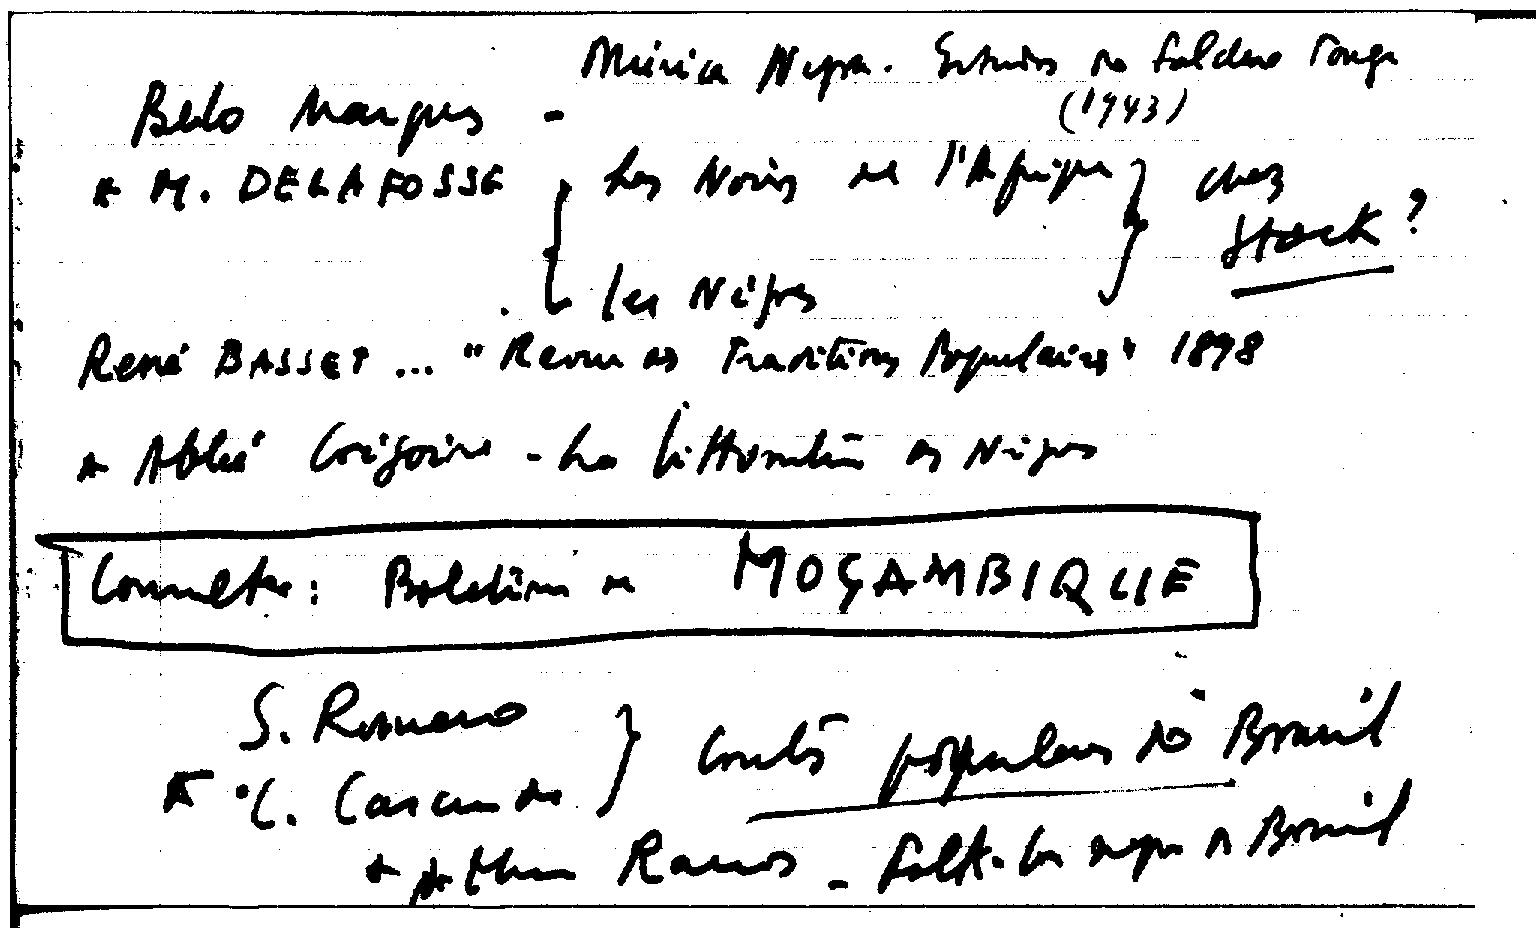 Belo Marques - Música Negra. Estudos do Folclore Tonga
(1943)
* M. DELAFOSSE { Les Noirs de l'Afrique } chez
Stock ?
Les Nègres
René BASSET ... "Revue des Traditions Populaires" 1898
* Abbé Grégoire - La Littérature des Nègres
Consultar: Boletim de MOÇAMBIQUE
S. Romero } Contos populares do Brasil
* C. Cascudo
* Arthur Ramos - Folk-lore negro do Brasil